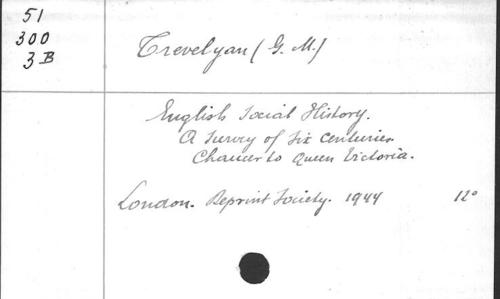 51
300
3B
Trevelyan (G. M.)
English Social History.
A Survey of Six Centuries
Chaucer to Queen Victoria.
London. Reprint Society. 1944 12°